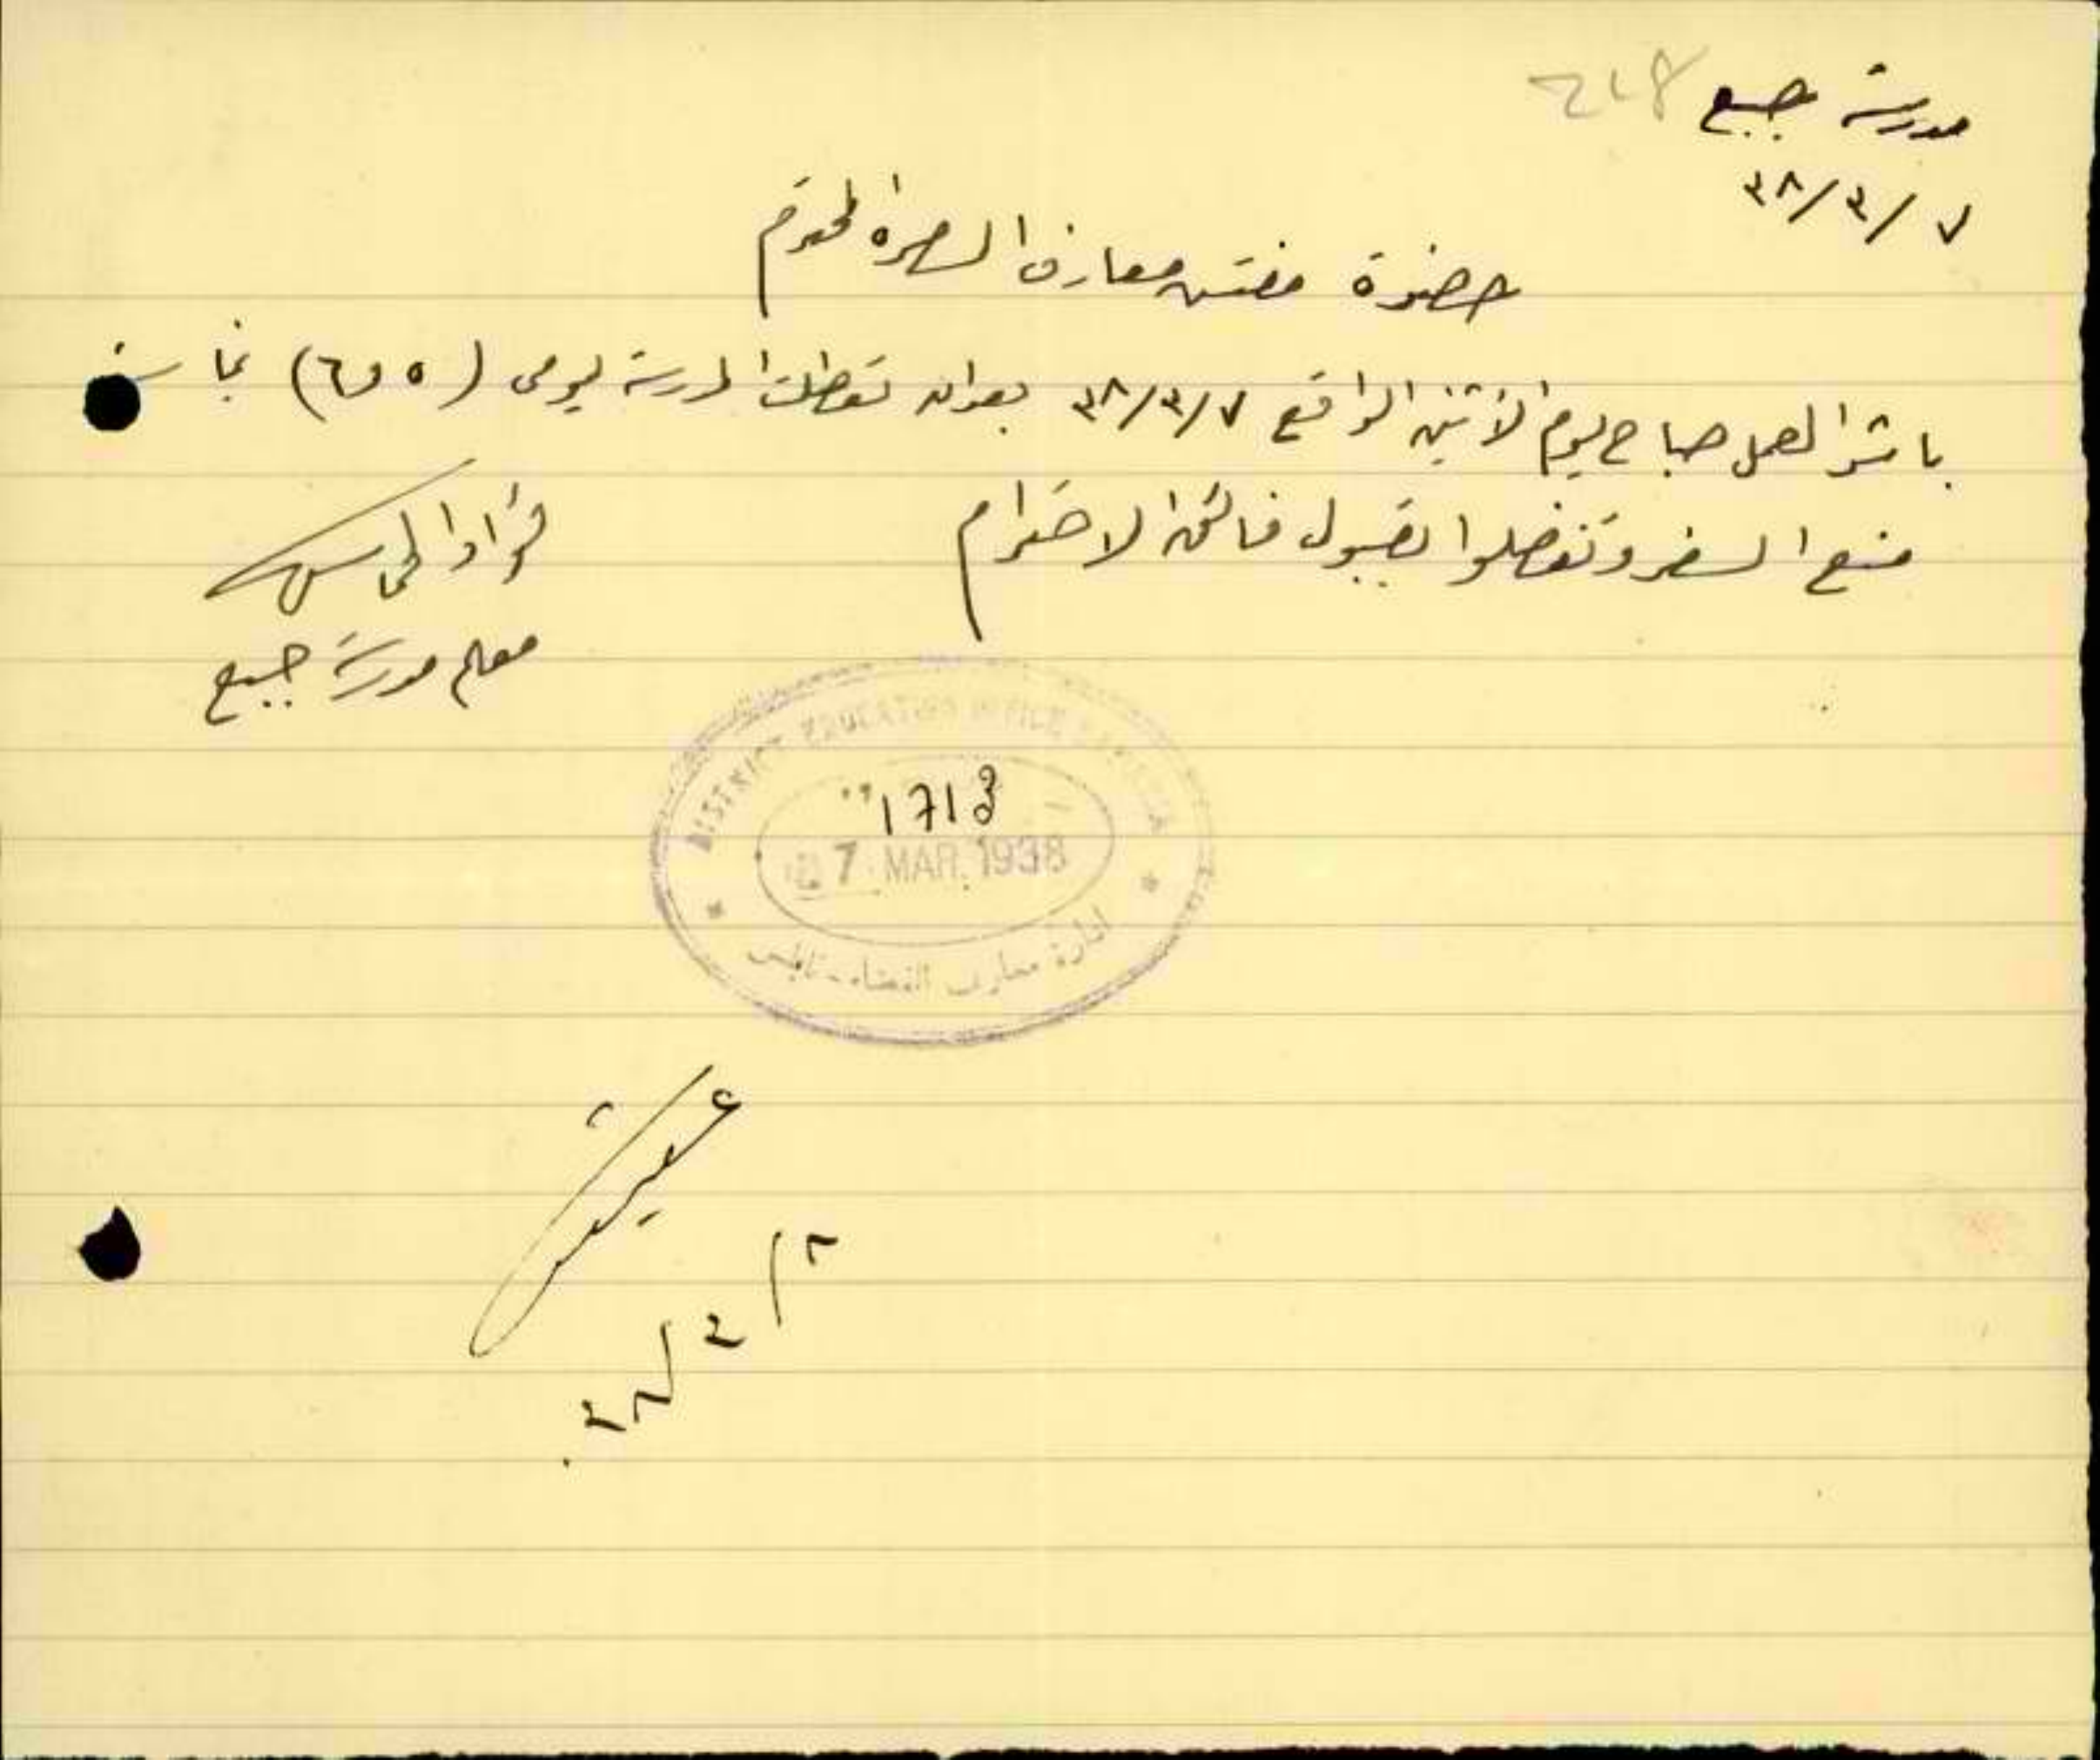 مدرسة جبع 248
٣٨/٣/٧
حضرة مفتش معارف السامرة المحترم
باشرنا العمل صباح يوم الاثنين الواقع ٣٨/٣/٧ بعد ان تعطلت المدرسة يومي (٥ و٦) بمناسبة
منع السفر وتفضلوا بقبول فائق الاحترام
فؤاد
معلم مدرسة جبع
DISTRICT EDUCATION OFFICE SAMARIA
1713
7 MAR. 1938
ادارة معارف القضاء - نابلس
٨/٣/٣٨